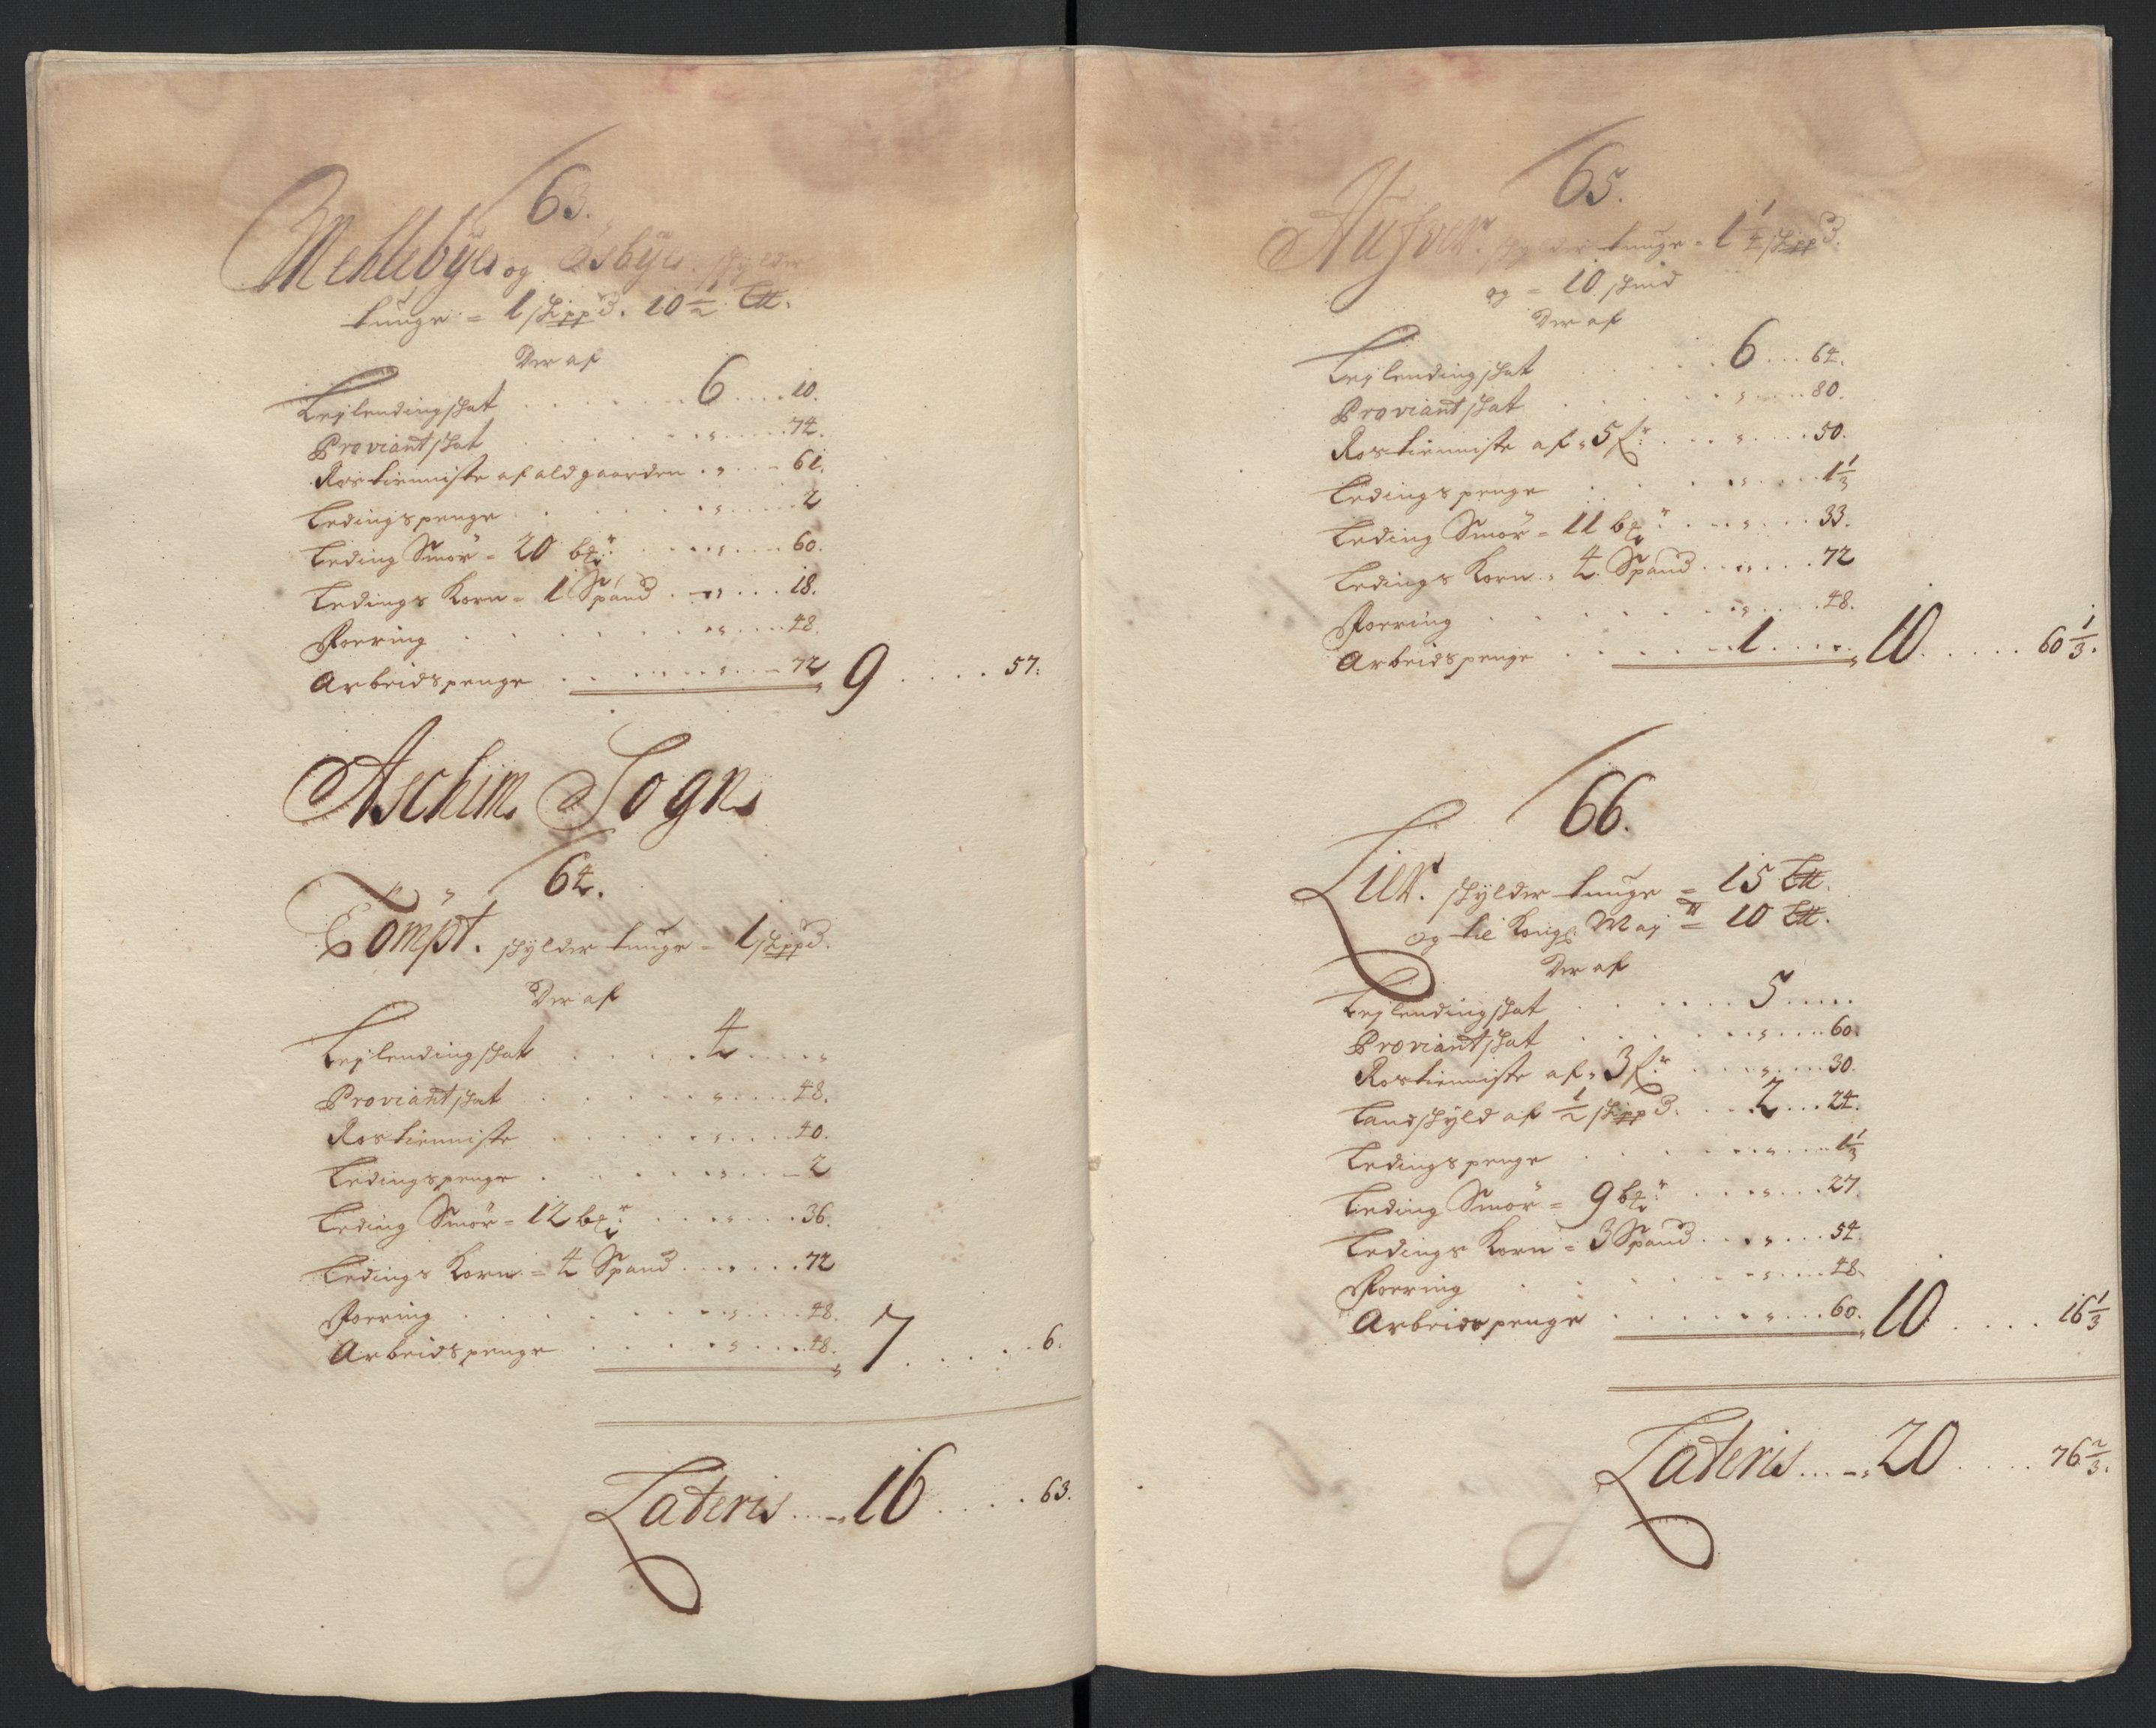 63.
Mellebÿer og Ösbÿer. skylder
tunge = 1 skipp℔. 10½ L℔.
Der af
Leylendingskat . . . . . . . 6 . . . . 10.
Proviantskat . . . . . . . " . . . . 74.
Rostieniste af ald gaarden . " . . . 61.
Ledingspenge . . . . . . . " . . . . 2
Leding Smör = 20 bꝭr. . . . . " . . . . 60.
Ledings Korn = 1 Spand . . " . . . . 18.
Foering . . . . . . . " . . . . 48.
Arbeidspenge . . . . . . " . . . 72 " 9 . . . . 57:
Aschim Sogn
64.
Tömpt. skÿlder tunge = 1 skipp℔.
Der af
Leylendingskat . . . . . 4 . . . . "
Proviantskat . . . . . . . " . . . . 48.
Rostieniste . . . . . . . " . . . . 40.
Ledingspenge . . . . . . . " . . . 2
Leding Smör = 12 bꝭr. . . . . " . . . . 36.
Ledings Korn = 4 Spand . . . . " . . . 72
Foering . . . . . . . . " . . . . 48.
Arbeidspenge . . . . . . " . . . . 48. " 7 . . . . . . 6.
Lateris . . . . 16 . . . . 63.
65.
skylder tunge = 1¼ skipp℔.
og = 10 skind
Der af
Leylendingskat . . . . . . 6 . . . 64.
Proviantskat . . . . . . . " . . . . 80.
Rostieniste af " 5 fr. . . . . " . . . . 50.
Ledingspenge . . . . . . . " . . . . 1⅓
Leding Smör = 11 bꝭr. . . . . " . . . . 33.
Ledings Korn = 4 Spand . . . " . . . . 72
Foering . . . . . . . . " . . . . 48.
Arbeidspenge . . . . . . 1 . . . . " 10 . . . . . 60⅓.
66.
Lier. skÿlder tunge = 15 L℔.
og til Kongl. Maytt = 10 L℔.
Der af
Leylendingskat . . . . . . 5 . . . . .
Proviantskat . . . . . . . " . . . . 60.
Rostieniste af " 3 fr. . . . . " . . . . 30.
Landskÿld af ½ skipp℔. . . . 2 . . . 24.
Ledingspenge . . . . . . . " . . . . 1⅓
Leding Smör = 9 bꝭr. . . . . " . . . . 27.
Ledings Korn = 3 Spand . . . " . . . . 54.
Foering . . . . . . . " . . . . 48.
Arbeidspenge . . . . . . " . . . . 60. " 10 . . . . . 16⅓
Lateris . . . . 20 . . . . 76⅔.